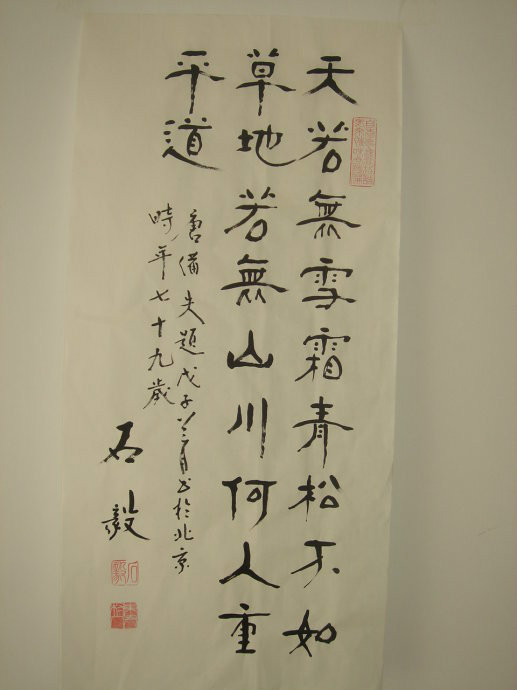 天若無雪霜青松不如
草地若無山川何人重
平道
唐備失題戊子八月书於北京
時年七十九歲
石毅